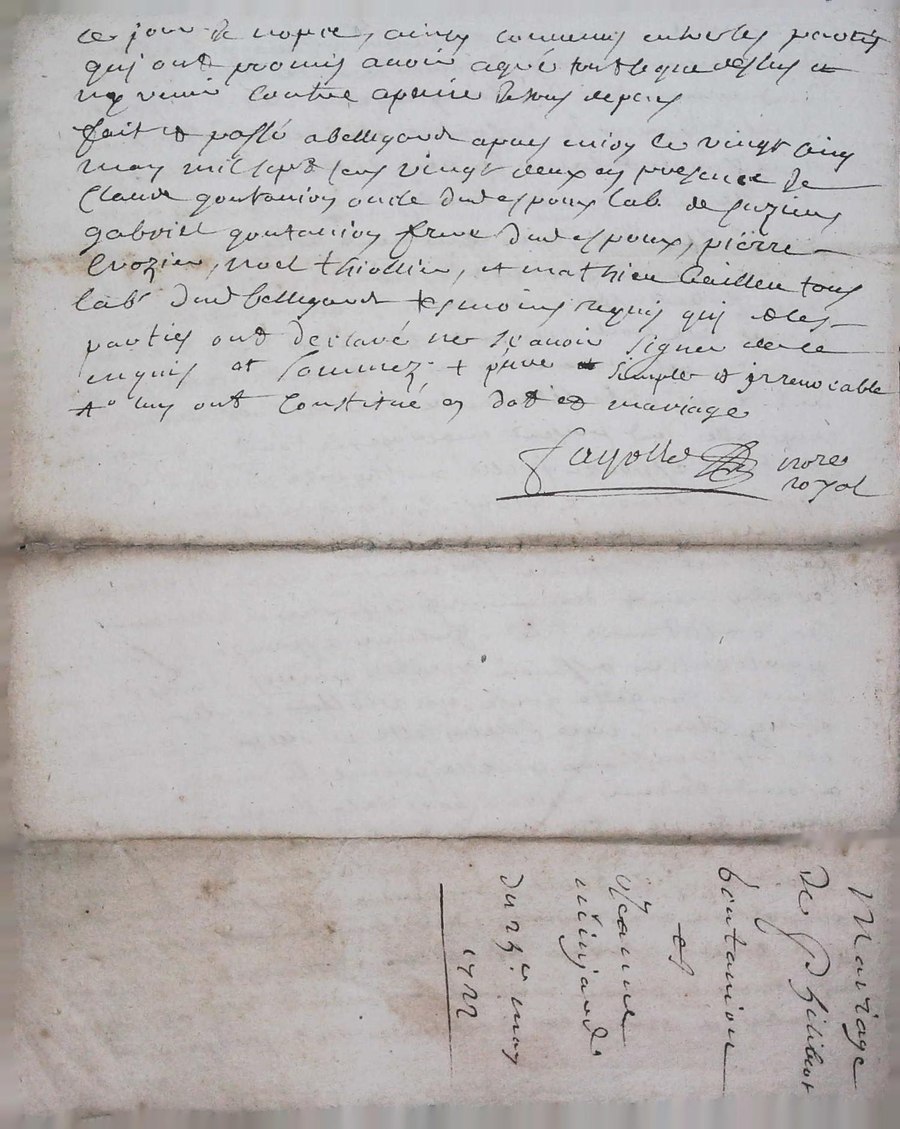 ce jour de nopces, ainsy convenus entre les parties
qui ont promis avoir agréé tout le que dessus et
ny venir contre a peine de tous depens
fait et passé a bellegarde apres midy le vingt cinq
may mil sept cens vingt deux en presence de
Claude goutanion oncle dud espoux lab. de
gabriel goutanion frere dud espoux, pierre
crozier, noel thiollier, et mathieu Caillou tous
lab. dud bellegarde tesmoins requis qui et les
parties ont declaré ne sçavoir signer de ce
enquis et sommez + simple et irrevocable
ont constitué en dot et mariage
fayolle nore
royal
Mariage
de Philibert
goutanion
et
jeanne
du 25e may
1722